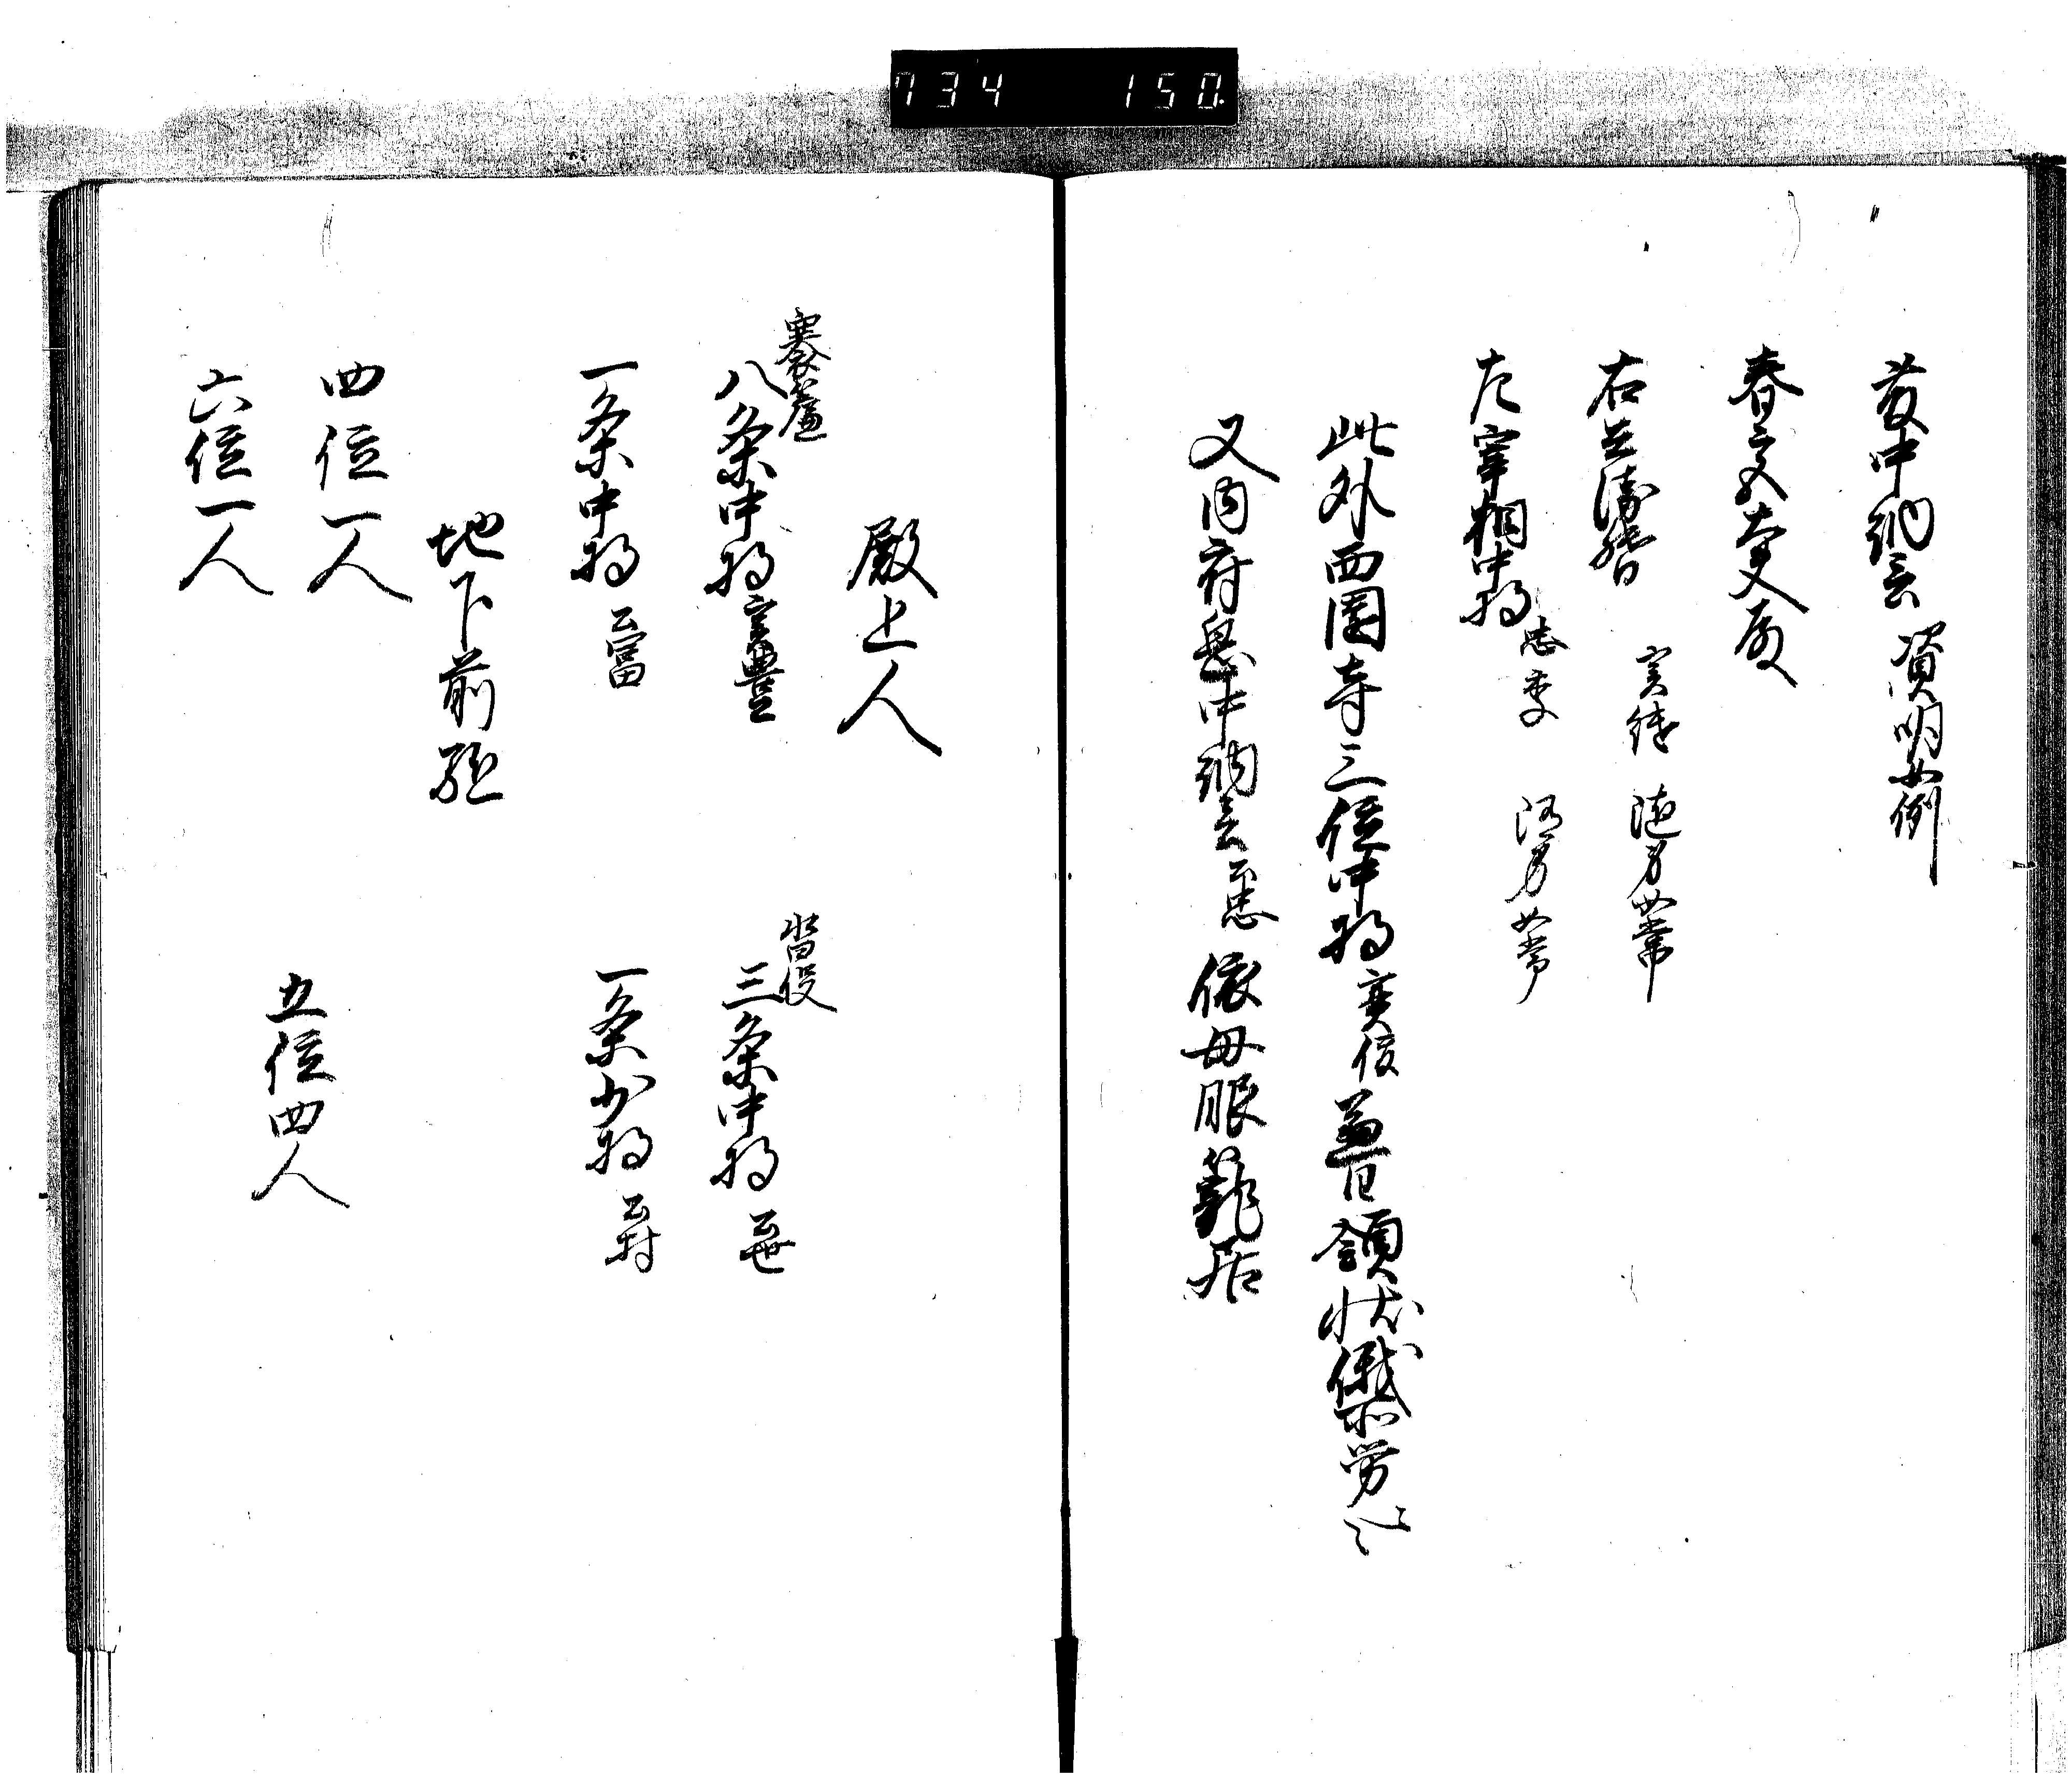 734 150
中納言 資明如例
春宮大夫殿
右兵衛督 実継 随身如常
左宰相中将 忠季 随身如常
此外西園寺三位中将 実俊 兼日領状俄所労云々
又内府息中納言 公忠 依母服籠居
殿上人
褰簾
八条中将 実豊
沓役
三条中将 公世
一条中将 公冨
一条少将 公村
地下前駈
四位一人
五位四人
六位一人